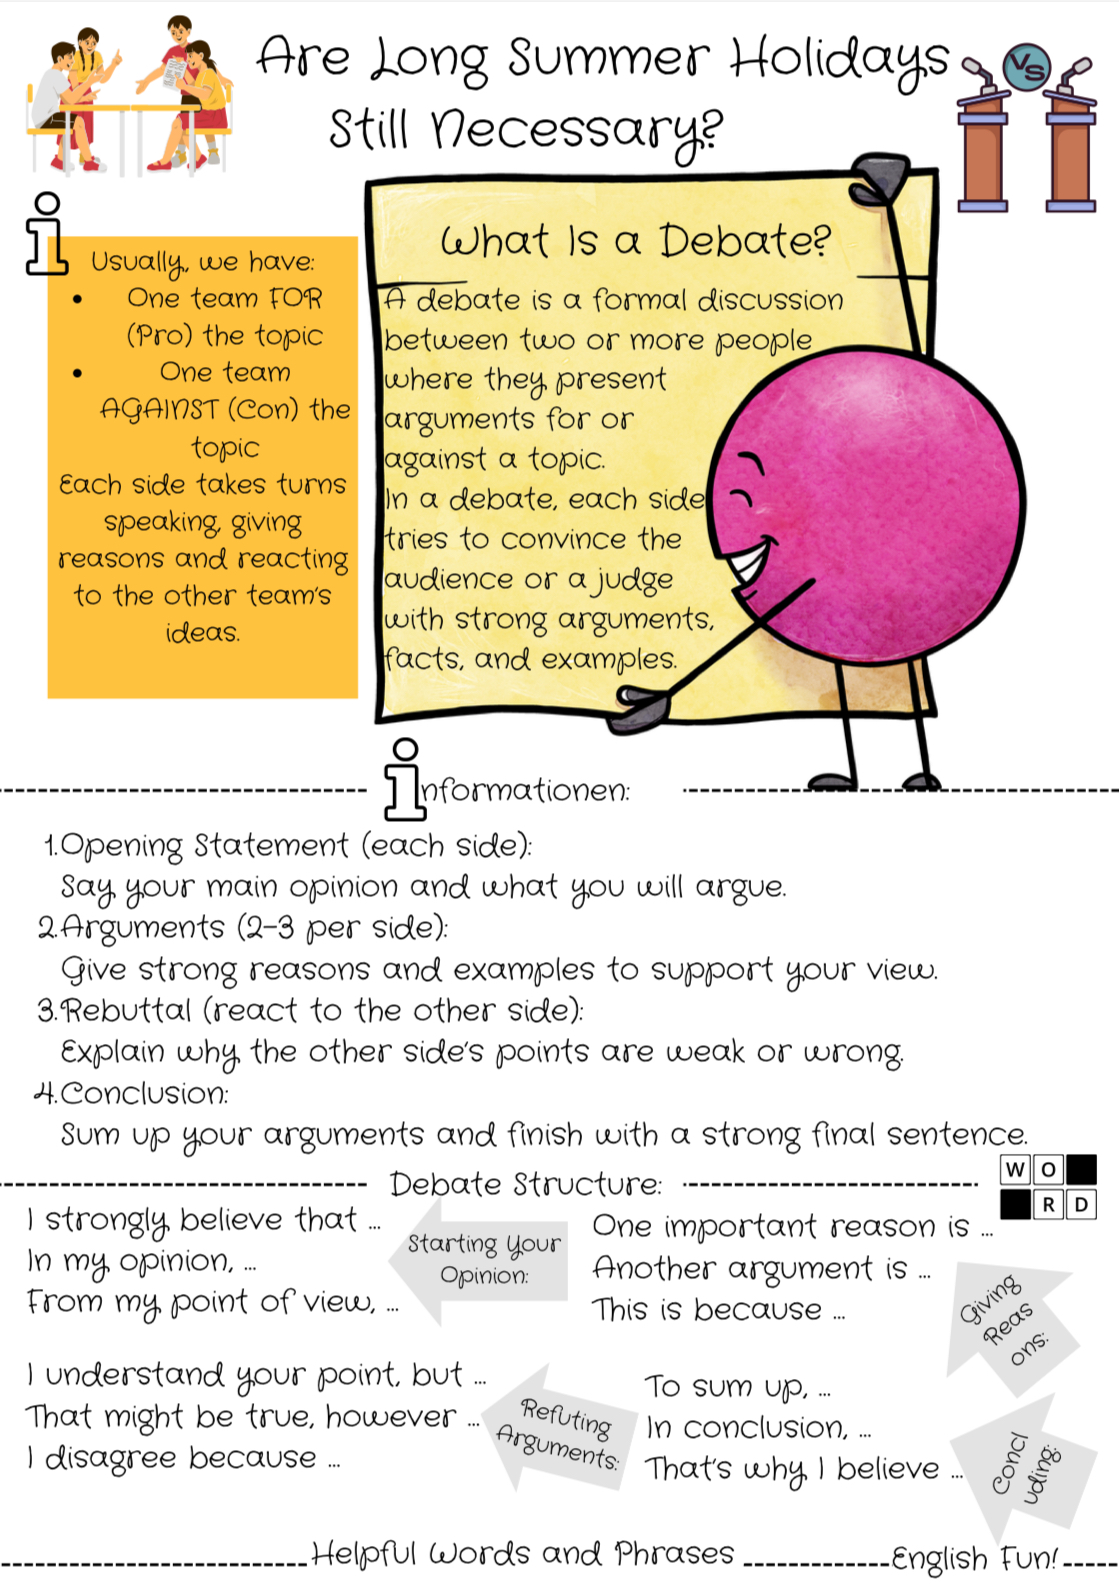 Are Long Summer Holidays
Still Necessary?
VS
What Is a Debate?
A debate is a formal discussion
between two or more people
where they present
arguments for or
against a topic.
In a debate, each side
tries to convince the
audience or a judge
with strong arguments,
facts, and examples.
i
Usually, we have:
• One team FOR
(Pro) the topic
• One team
AGAINST (Con) the
topic
Each side takes turns
speaking, giving
reasons and reacting
to the other team's
ideas.
informationen:
1.Opening Statement (each side):
Say your main opinion and what you will argue.
2.Arguments (2-3 per side):
Give strong reasons and examples to support your view.
3.Rebuttal (react to the other side):
Explain why the other side's points are weak or wrong.
4.Conclusion:
Sum up your arguments and finish with a strong final sentence.
Debate Structure:
WO
RD
I strongly believe that ...
In my opinion, ...
From my point of view, ...
Starting Your
Opinion:
One important reason is ...
Another argument is ...
This is because ...
Giving
Reas
ons:
I understand your point, but ...
That might be true, however ...
I disagree because ...
Refuting
Arguments:
To sum up, ...
In conclusion, ...
That's why I believe ...
Concl
uding:
Helpful Words and Phrases
English Fun!